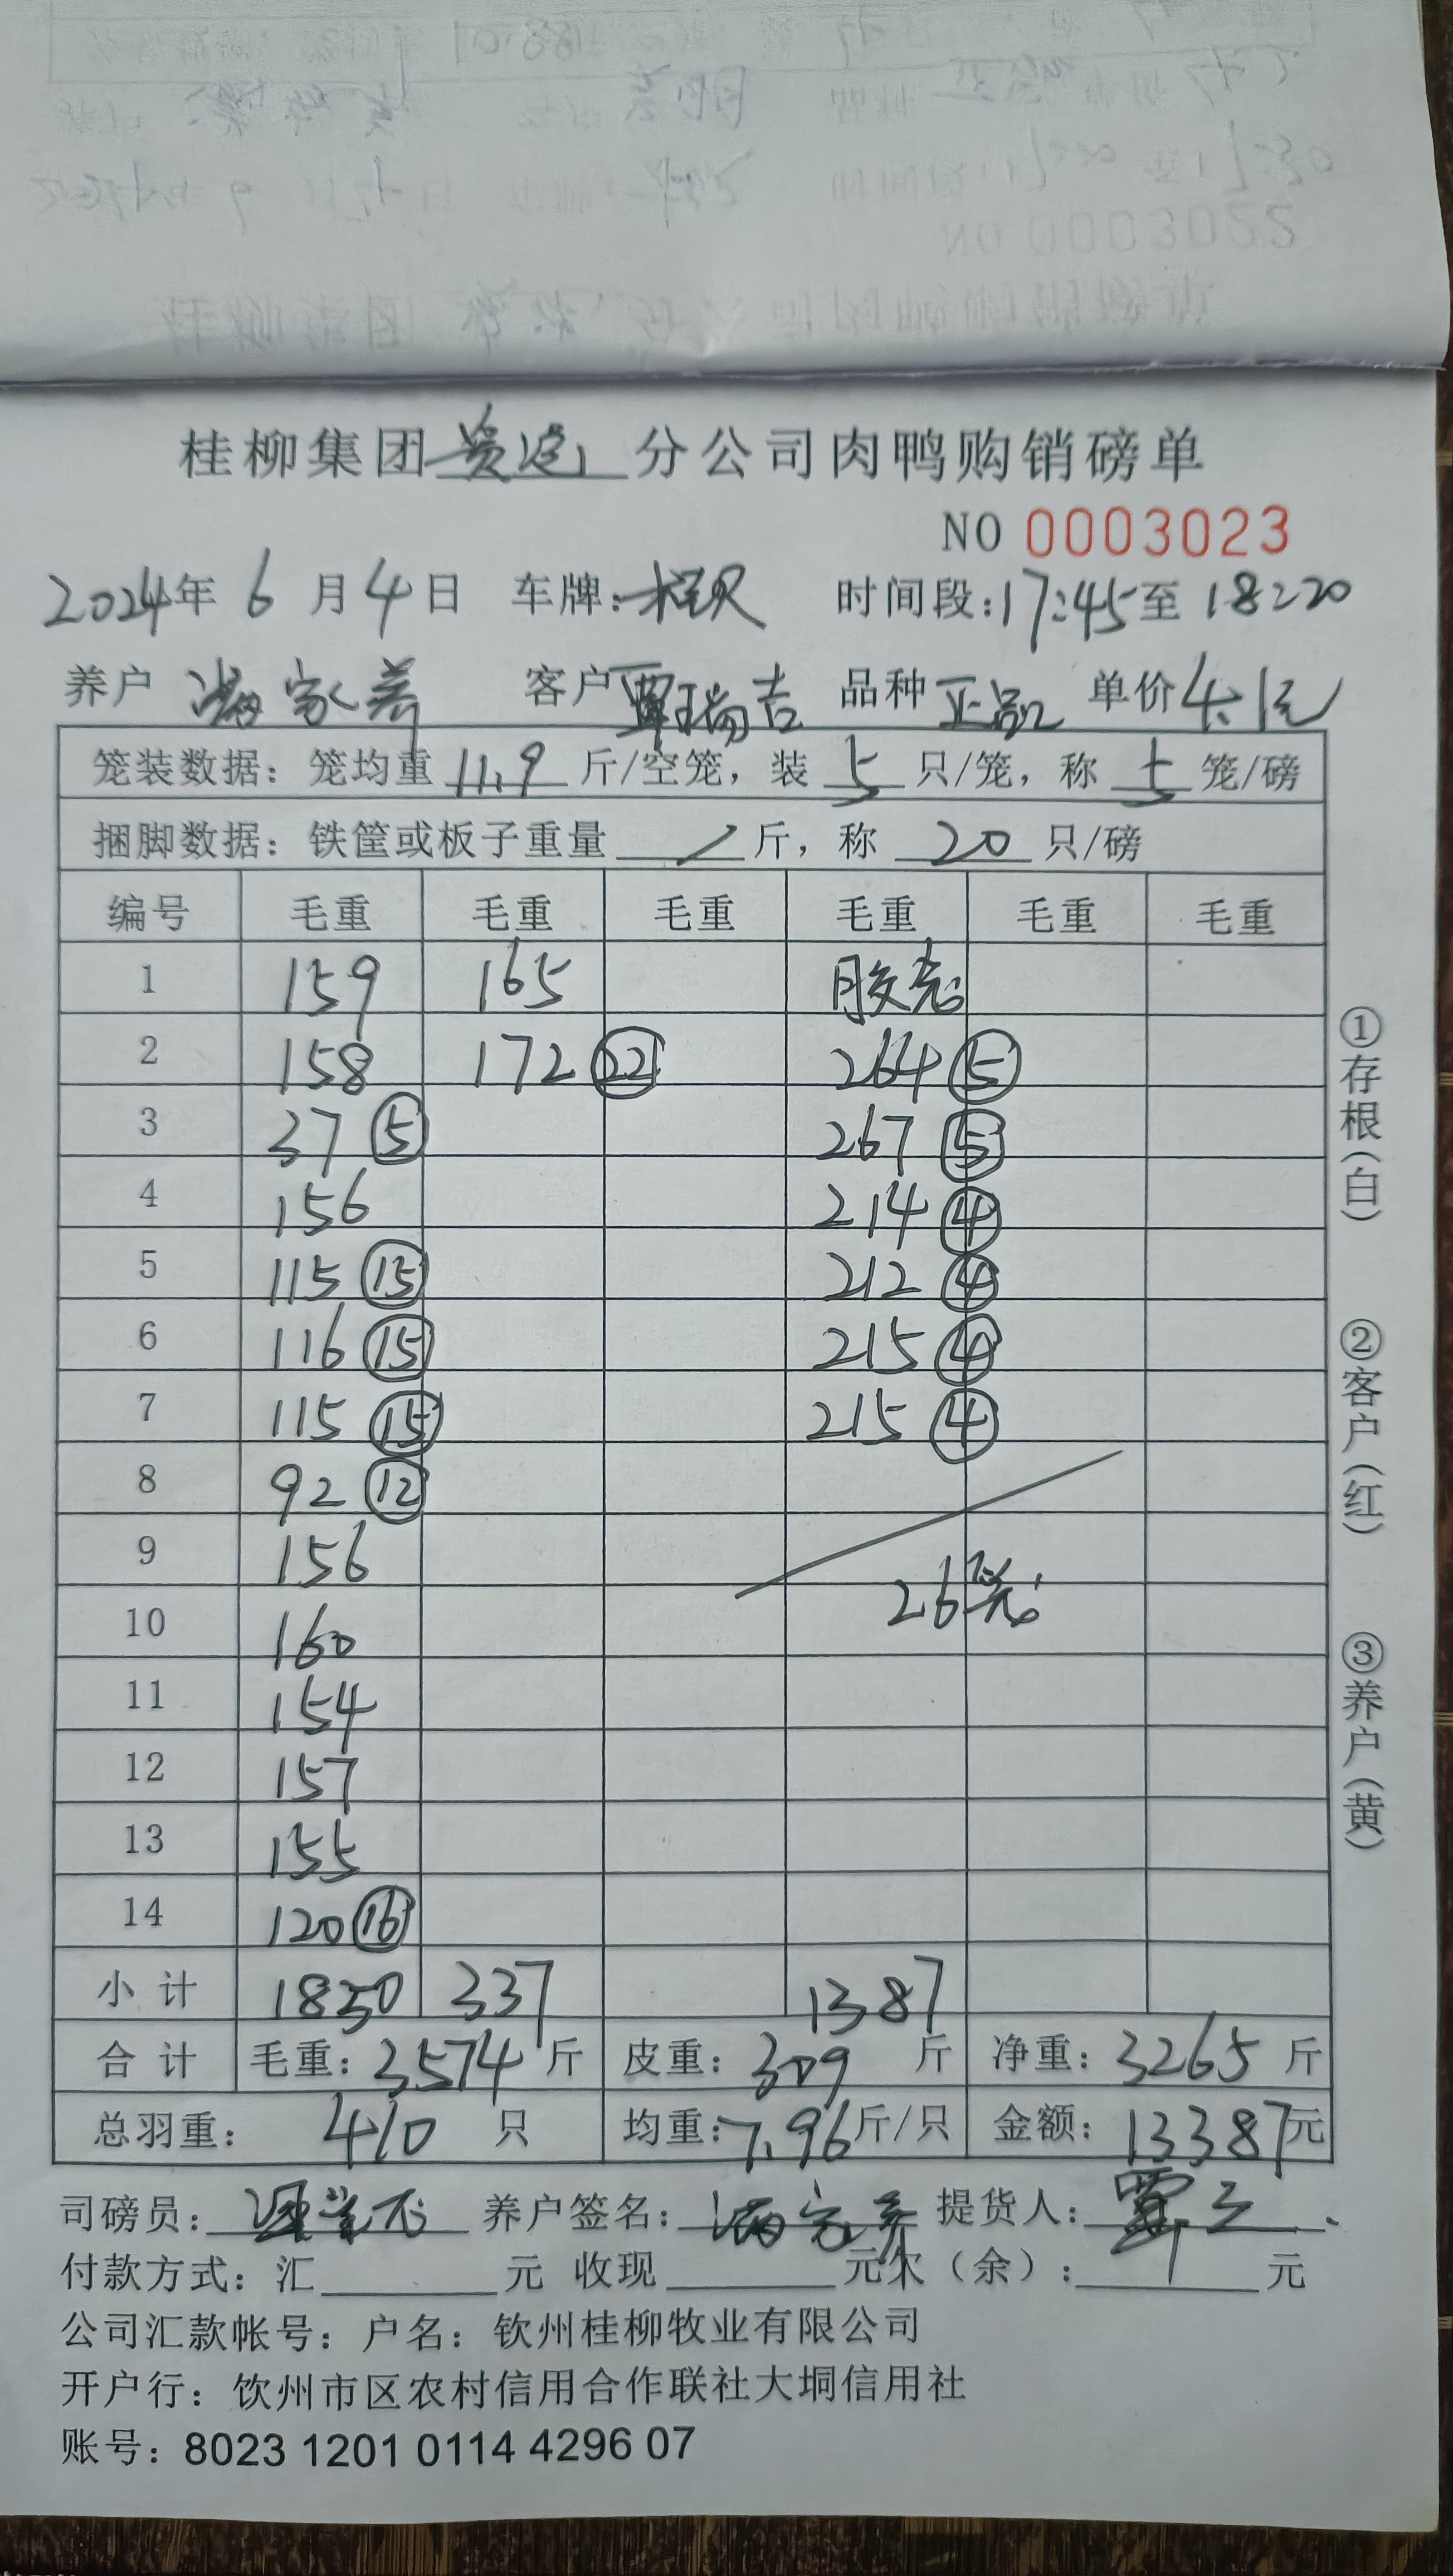 NO 0003022
桂柳集团贵港分公司肉鸭购销磅单
NO 0003023
2024年 6 月 4 日 车牌: 时间段:17:45至 18:20
养户 客户 覃瑞吉 品种 正品 单价 4.1元
笼装数据：笼均重 11.9 斤/空笼，装 5 只/笼，称 5 笼/磅
捆脚数据：铁筐或板子重量 / 斤，称 20 只/磅
编号 毛重 毛重 毛重 毛重 毛重 毛重
1 159 165 胶壳
2 158 172 22 264 5
3 37 5 267 5
4 156 214 4
5 115 15 212 4
6 116 15 215 4
7 115 15 215 4
8 92 12
9 156
10 160 26壳
11 154
12 157
13 155
14 120 16
小 计 1850 337 1387
合 计 毛重：3574 斤 皮重：309 斤 净重：3265 斤
总羽重： 410 只 均重：7.96斤/只 金额：13387元
司磅员： 养户签名： 提货人：覃
付款方式：汇 元 收现 元欠（余）： 元
公司汇款帐号：户名：钦州桂柳牧业有限公司
开户行：饮州市区农村信用合作联社大垌信用社
账号：8023 1201 0114 4296 07
①存根（白）
②客户（红）
③养户（黄）